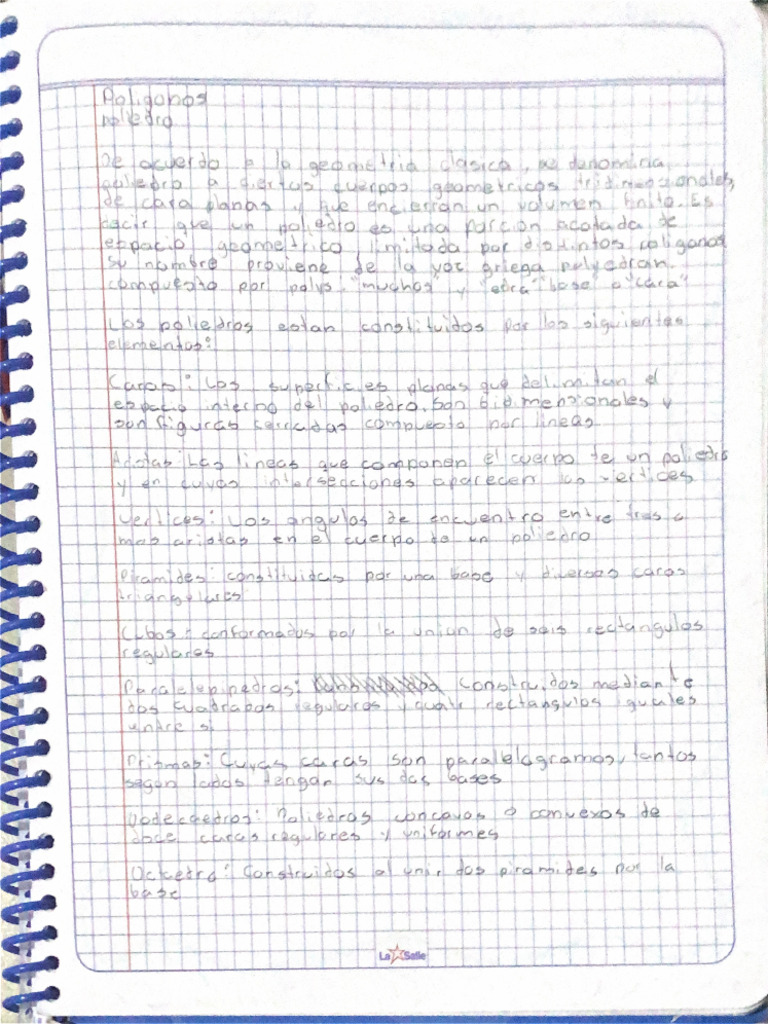 Poligonos
poliedro
De acuerdo a la geometria clasica, se denomina
poliedro a ciertos cuerpos geometricos tridimenzionales,
de cara planas y que encierran un volumen finito. Es
decir que un poliedro es una porcion acotada de
espacio geometrico limitada por distintos poligonos
su nombre proviene de la voz griega polyedran.
compuesto por polys "muchos" y "edra" base o "cara"
Los poliedros estan constituidos por los siguientes
elementos:
Caras: Los superficies planas que delimitan el
espacio interno del poliedro. Son bidimenzionales y
son figuras serradas compuesto por lineas
Aristas: Las lineas que componen el cuerpo de un poliedro
y en cuyas intersecciones aparecen los vertices
Vertices: Los angulos de encuentro entre tres o
mas aristas en el cuerpo de un poliedro
Piramides: constituidas por una base y diversos caras
triangulares
Cubos: conformados por la union de seis rectangulos
regulares
Paralelepipedros: Construidos mediante
dos cuadrados regulares y quatr rectangulos iguales
entre si
Prismas: Cuyas caras son paralelogramos, tantos
segun lados tengan sus dos bases
Dodecaedros: Poliedros concavos o convexos de
doce caras regulares y uniformes
Octaedro: Construidos al unir dos piramides por la
base
La Salle